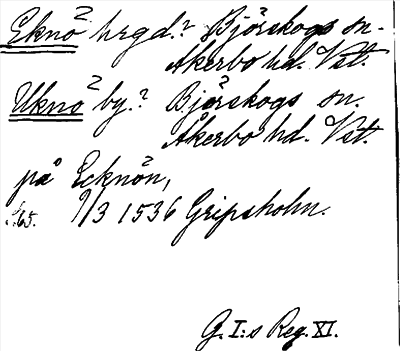 Eknö hrgd.? Björskogs sn.
Åkerbo hd. Vst.
Uknö by.? Björskogs sn.
Åkerbo hd. Vst.
på Ecknön,
S. 65. 9/3 1536 Gripsholm.
G. I:s Reg. XI.